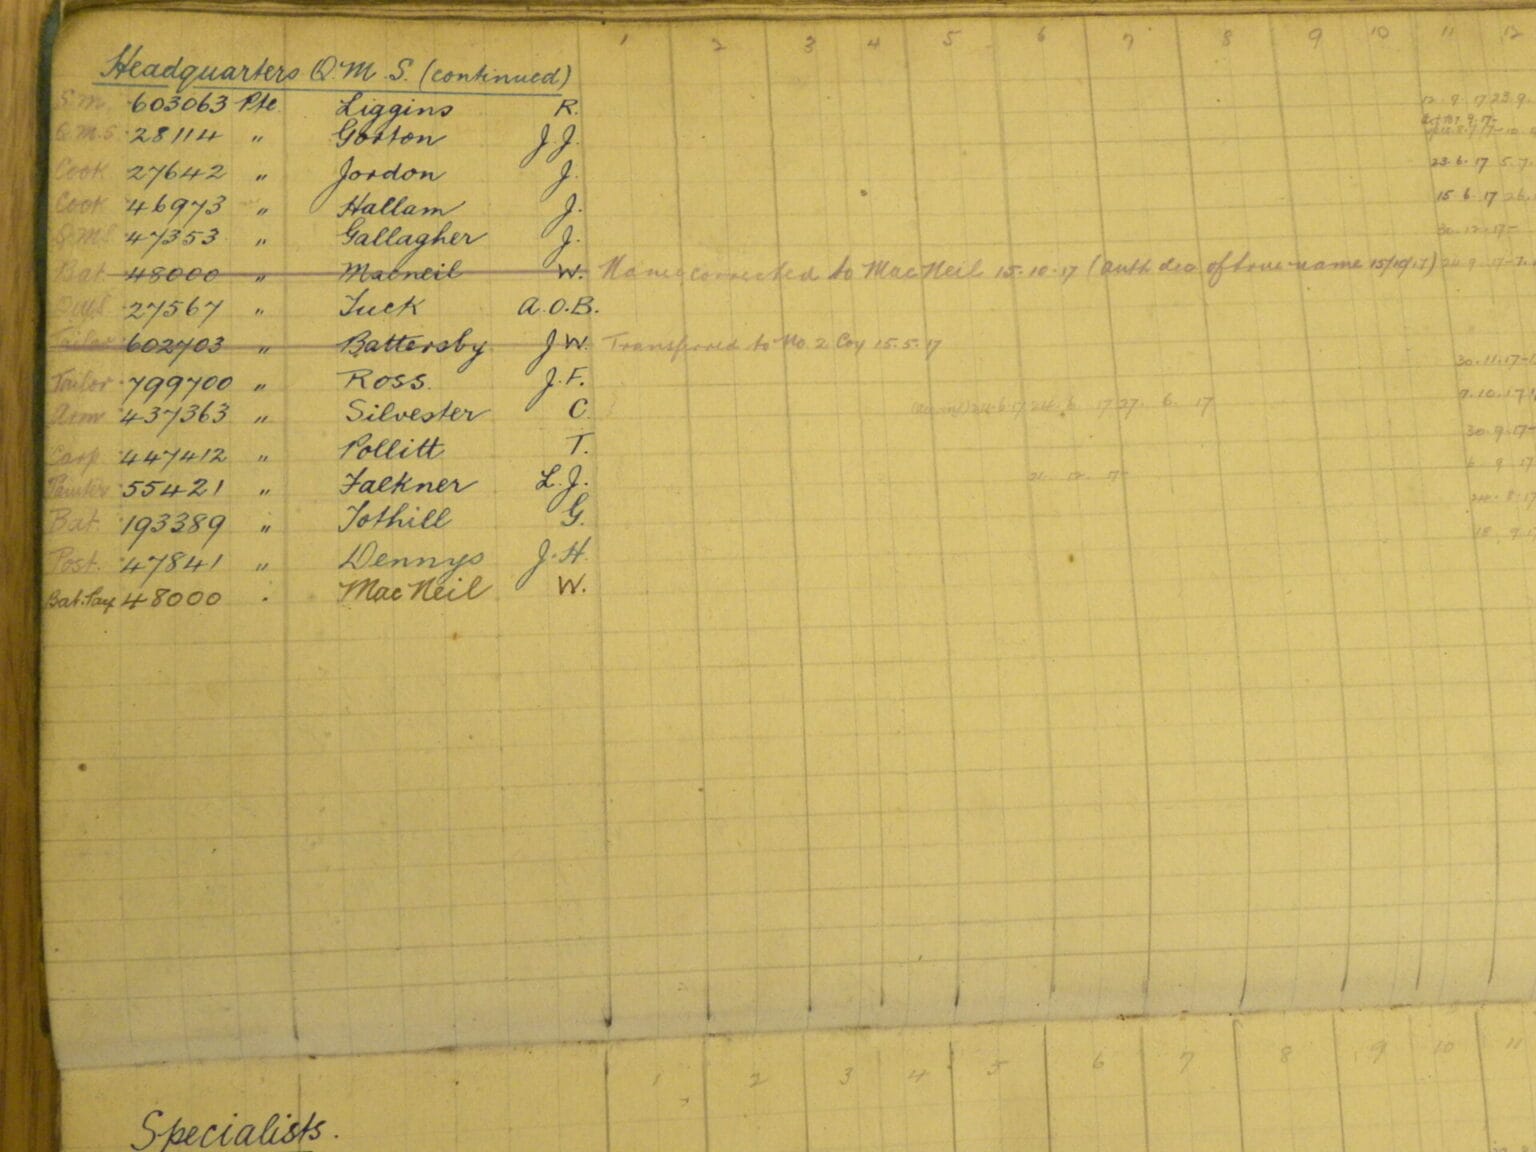 1 2 3 4 5 6 7 8 9 10 11 12
Headquarters Q.M.S. (continued)
S.M. 603063 Pte. Liggins R. 12.9.17 23.9
Q.M.S. 28114 " Gorton J J.
Cook 27642 " Jordon J. 23.6.17 5.7.
Cook 46973 " Hallam J. 15 6 17
QMS 47353 " Gallagher J. 30.12.17-
Bat 48000 " Macneil W. Name corrected to MacNeil 15.10.17 (auth dec of true name 15/10/17)
QMS 27567 " Tuck A.O.B.
Tailor 602703 " Battersby J W. Transferred to No. 2 Coy 15.5.17
Tailor 799700 " Ross. J.F. 30.11.17
Arm 437363 " Silvester C. 24.6.17 27. 6. 17 9.10.17
Carp 447412 " Pollitt T. 30.9.17-
55421 " Falkner L.J. 6 9 17
Bat. 193389 " Tothill G. 24.8.17
Post. 47841 " Dennys J.H. 18. 9.
Bat. Pay 48000 " MacNeil W.
1 2 3 4 5 6 7 8 9 10 11
Specialists.